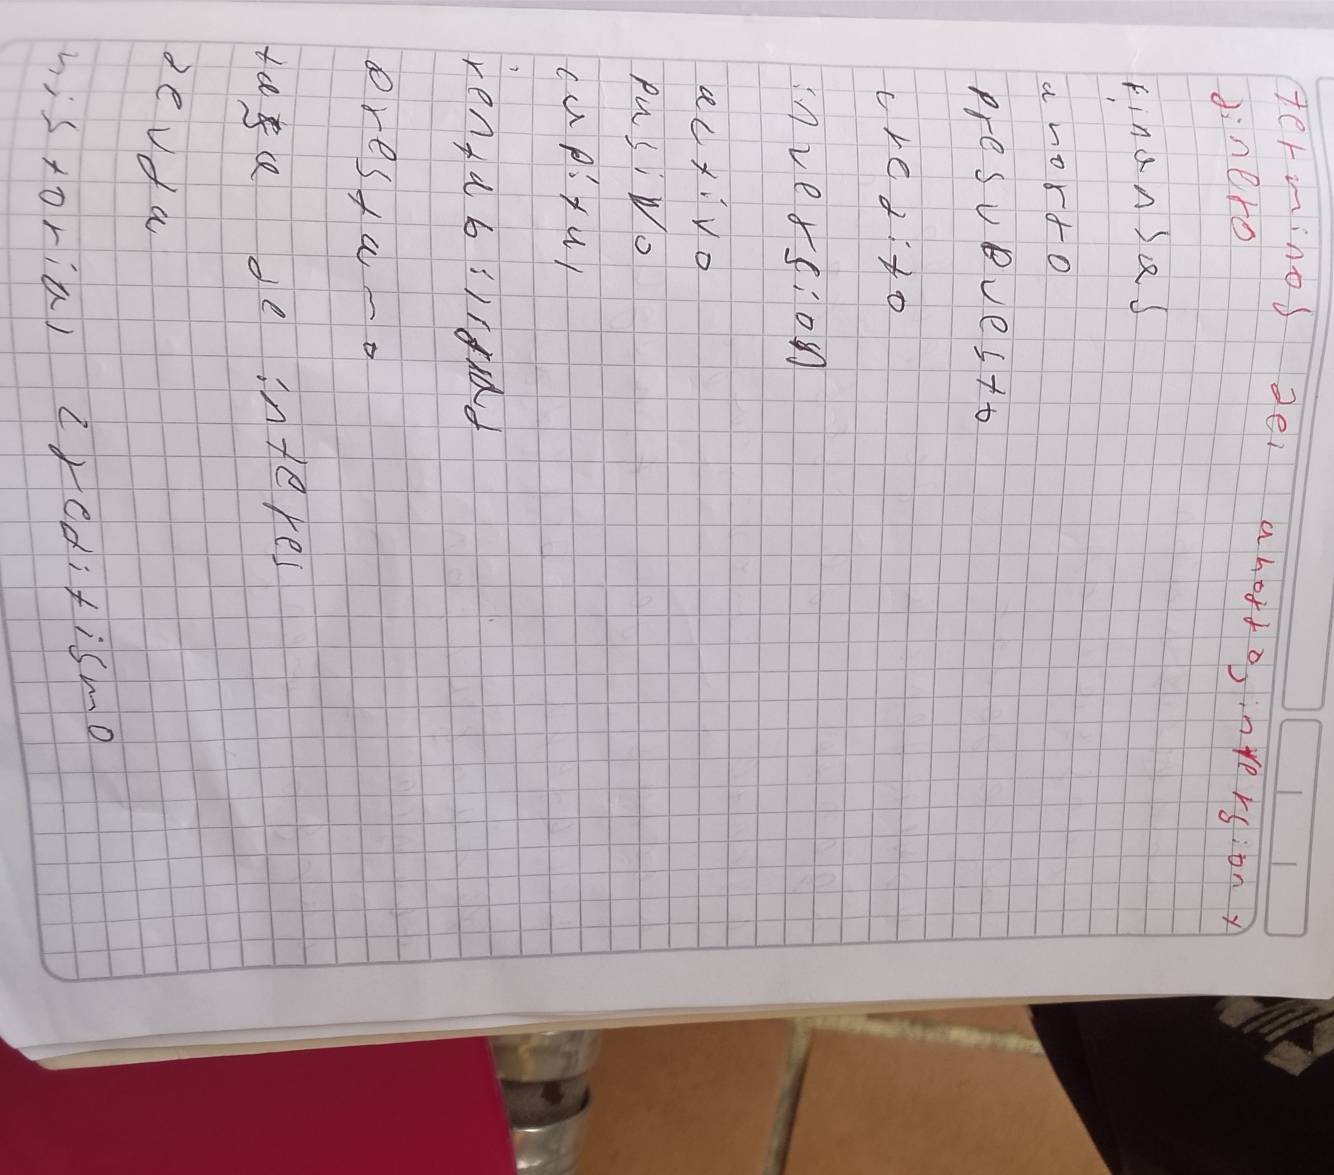 terminos del ahorro, inversion y
dinero
finansas
ahorro
presupuesto
credito
inversion
activo
pasivo
capital
rentabilidad
prestamo
tasa de interes
deuda
historial creditismo